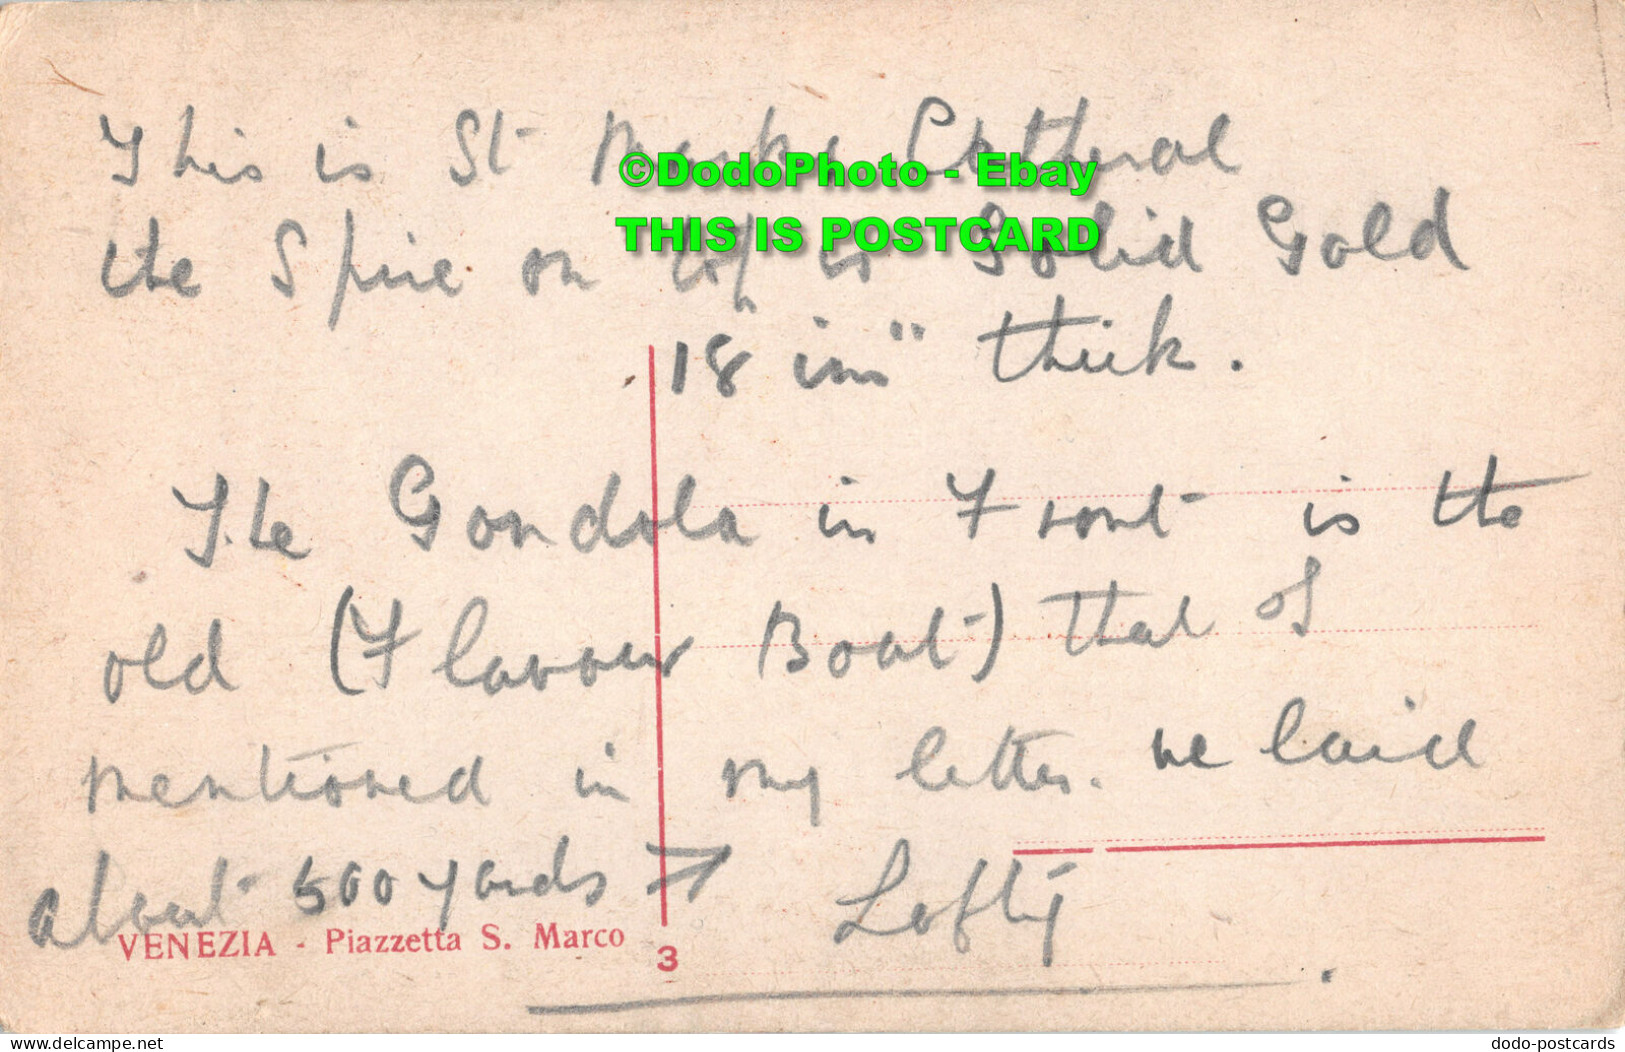 This is St Marks Cathral
©DodoPhoto - Ebay
THIS IS POSTCARD
the Spire on top is Solid Gold
18" inn" thick.
The Gondola in Front is the
old (Flavour Boat) that I
mentioned in my letter. we laid
about 500 yards →
Lofty
VENEZIA - Piazzetta S. Marco
3
delcampe.net
dodo-postcards